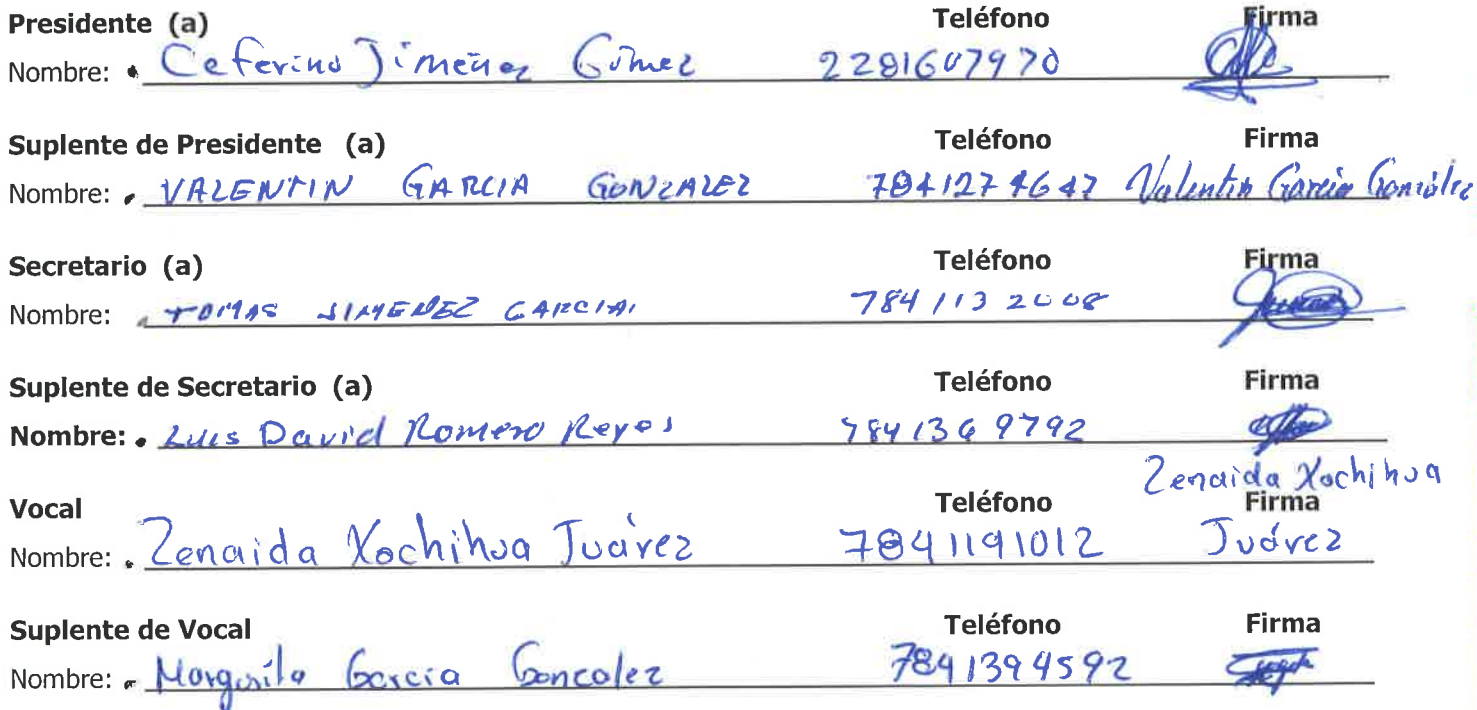 Presidente (a) Teléfono Firma
Nombre: Ceferino Jiménez Gómez 2281607970
Suplente de Presidente (a) Teléfono Firma
Nombre: VALENTIN GARCIA GONZALEZ 7841274647 Valentin García González
Secretario (a) Teléfono Firma
Nombre: TOMAS JIMENEZ GARCIA 784 113 2008
Suplente de Secretario (a) Teléfono Firma
Nombre: Luis David Romero Reyes 7841369792
Zenaida Xochihua
Vocal Teléfono Firma
Nombre: Zenaida Xochihua Juárez 7841191012 Juárez
Suplente de Vocal Teléfono Firma
Nombre: Margarita Garcia Goncalez 7841394592